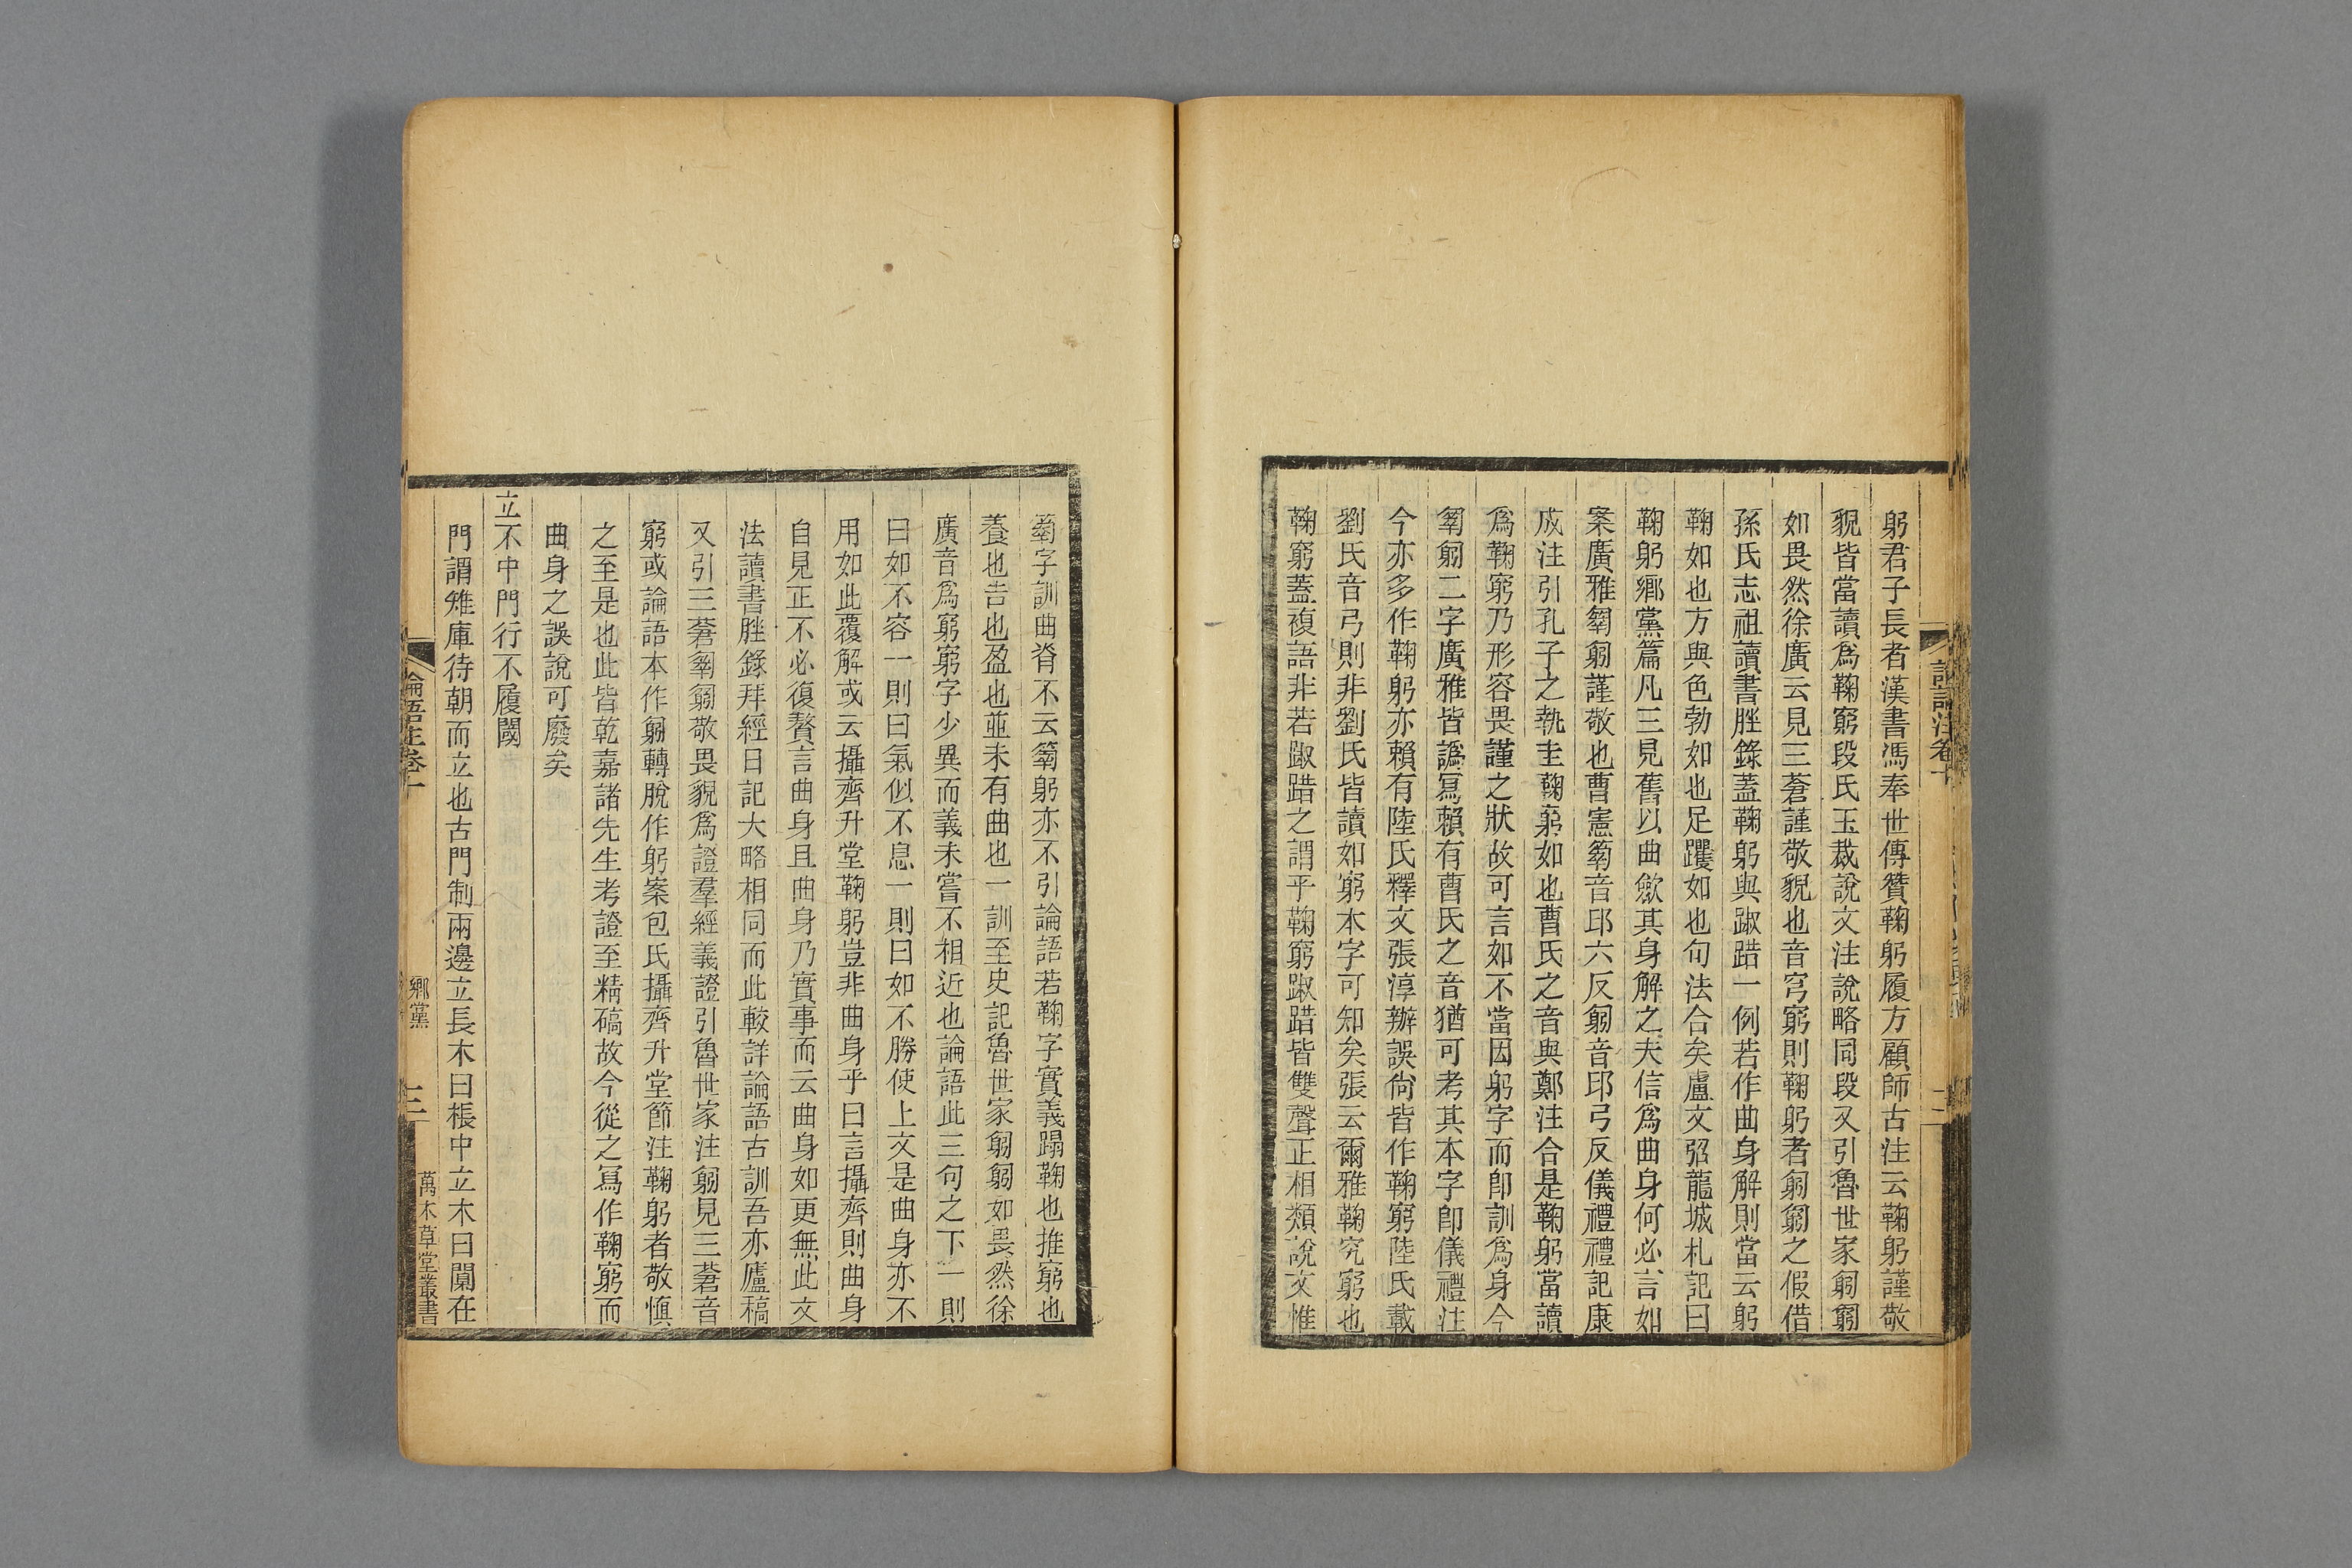 論語注卷十
二
躬君子長者漢書馮奉世傳贊鞠躬履方顧師古注云鞠躬謹敬
貌皆當讀爲鞠窮段氏玉裁說文注說略同段又引魯世家匑匑
如畏然徐廣云見三蒼謹敬貌也音穹窮則鞠躬者匑匑之假借
孫氏志祖讀書脞錄蓋鞠躬與踧踖一例若作曲身解則當云躬
鞠如也方與色勃如也足躩如也句法合矣盧文弨龍城札記曰
鞠躬鄉黨篇凡三見舊以曲斂其身解之夫信爲曲身何必言如
案廣雅匔匑謹敬也曹憲匔音邱六反匑音邱弓反儀禮禮記康
成注引孔子之執圭鞠窮如也曹氏之音與鄭注合是鞠躬當讀
爲鞠窮乃形容畏謹之狀故可言如不當因躬字而卽訓爲身今
匔匑二字廣雅皆譌寫賴有曹氏之音猶可考其本字卽儀禮注
今亦多作鞠躬亦賴有陸氏釋文張淳辦誤尙皆作鞠窮陸氏載
劉氏音弓則非劉氏皆讀如窮本字可知矣張云爾雅鞠究窮也
鞠窮蓋複語非若踧踖之謂乎鞠窮踧踖皆雙聲正相類說文惟
匔字訓曲脊不云匔躬亦不引論語若鞠字實義蹋鞠也推窮也
養也告也盈也並未有曲也一訓至史記魯世家匑匑如畏然徐
廣音爲窮窮字少異而義未嘗不相近也論語此三句之下一則
曰如不容一則曰氣似不息一則曰如不勝使上文是曲身亦不
用如此覆解或云攝齊升堂鞠躬豈非曲身乎曰言攝齊則曲身
自見正不必復贅言曲身且曲身乃實事而云曲身如更無此文
法讀書脞錄拜經日記大略相同而此較詳論語古訓吾亦廬稿
又引三蒼匔匑敬畏貌爲證羣經義證引魯世家注匑見三蒼音
窮或論語本作匑轉脫作躬案包氏攝齊升堂節注鞠躬者敬慎
之至是也此皆乾嘉諸先生考證至精碻故今從之寫作鞠窮而
曲身之誤說可廢矣
立不中門行不履閾
門謂雉庫待朝而立也古門制兩邊立長木曰棖中立木曰闑在
論語注卷十
鄉黨
三
萬木草堂叢書